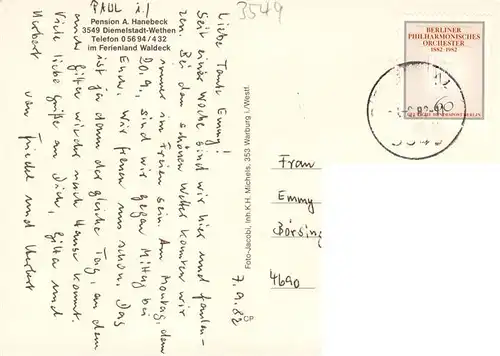 PAUL
3549
Pension A. Hanebeck
3549 Diemelstadt-Wethen
Telefon 0 56 94 / 4 32
im Ferienland Waldeck
7.9.82
Liebe Tante Emmy!
Seit einer Woche sind wir hier und faulen-
zen. Bei dem schönen Wetter konnten wir
immer im Freien sein. Am Montag, dem
20.9., sind wir gegen Mittag bei
Euch. Wir freuen uns schon. Das
ist ja dann der gleiche Tag, an dem
auch Gitta wieder nach Hause kommt.
Viele liebe Grüße an Dich, Gitta und
Herbert
von Friedel und Herbert
Foto-Jacobi, Inh. K.H. Michels, 353 Warburg i. Westf.
CP
BERLINER
PHILHARMONISCHES
ORCHESTER
1882-1982
60
DEUTSCHE BUNDESPOST BERLIN
Frau
Emmy
Börsing
4690